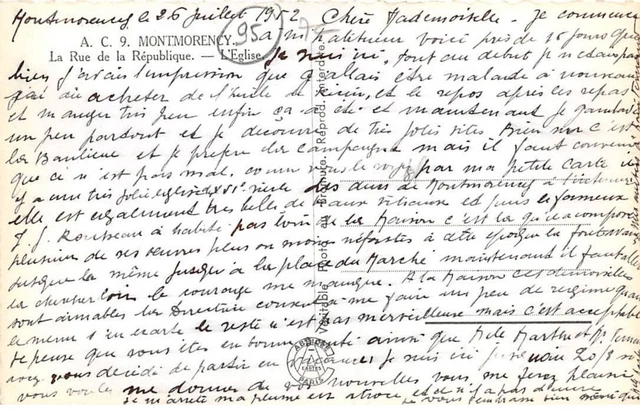 Montmorency le 26 juillet 1952 Chère Mademoiselle - je commence
A. C. 9. MONTMORENCY.
95
à m'habituer voici près de 15 jours que
La Rue de la République. — L'Eglise
je suis ici, tout au début je ne savais pas
bien j'avais l'impression que j'allais être malade à nouveau
j'ai dû acheter de l'huile de ricin, et le repos après les repas
et manger très peu enfin ça a été et maintenant je
un peu partout et je découvre de très jolis sites. Bien sûr c'est
la Banlieue et je préfère la campagne mais il faut convenir
que ce n'est pas mal. comme vous le voyez par ma petite carte il
y a une très jolie église XVIe siècle des ducs de Montmorency à l'intérieur
elle est également très belle de vitraux et puis le fameux
J. J. Rousseau a habité pas loin de la Maison c'est là qu'il a composé
plusieurs de ses œuvres plus ou moins néfastes à cette époque
jusque là même jusqu'à la place du Marché maintenant il faut aller
la chercher loin le courage me manque. A la Maison ces demoiselles
sont aimables la Directrice consent à me faire un peu de régime quand
le menu s'en écarte le reste n'est pas merveilleux mais c'est acceptable
je pense que vous êtes en bonne santé ainsi que Melle Marthe et
avez vous décidé de partir en vacances je suis ici 20/8 si
vous voulez me donner de vos nouvelles vous me ferez plaisir
je m'arrête ma plume est atroce, et je n'ai pas d'encre
Véritable Photo-Bromure. Reprod.
ABEILLE
CARTES
PARIS